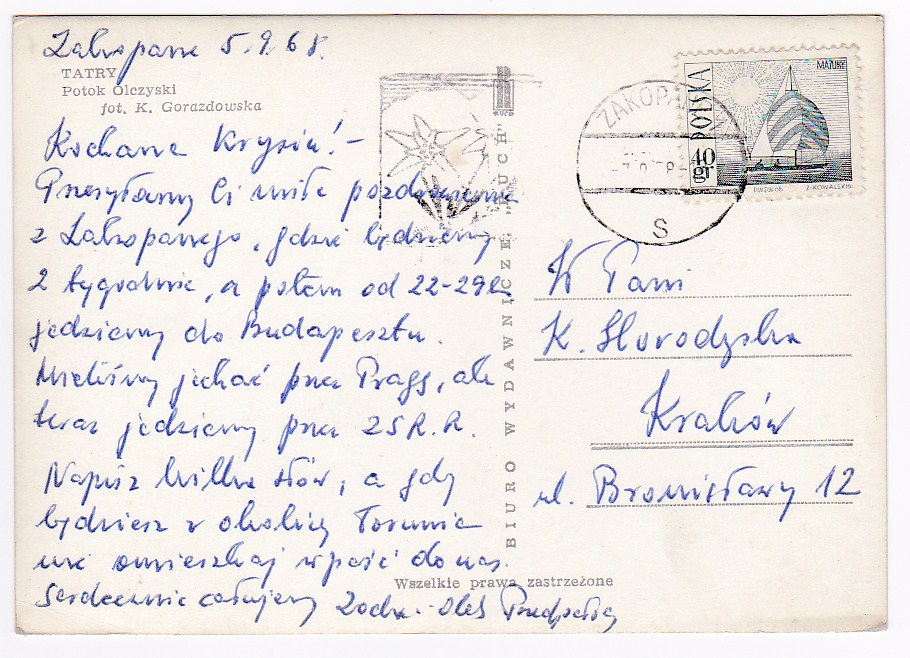 Zakopane 5.9.68.
TATRY
Potok Olczyski
fot. K. Gorazdowska
Kochana Krysiu! –
Przesyłamy Ci miłe pozdrowienia
z Zakopanego, gdzie będziemy
2 tygodnie, a potem od 22-29
jedziemy do Budapesztu.
Mieliśmy jechać przez Pragę, ale
teraz jedziemy przez ZSR.R.
Napisz kilka słów, a gdy
będziesz w okolicy Torunia
nie omieszkaj wpaść do nas.
Serdecznie całujemy Zocha - Oleś
Wszelkie prawa zastrzeżone
BIURO WYDAWNICZE „RUCH”
RUCH
ZAKOPANE
S
POLSKA
40 gr
PWPW 66
Z. KOWALSKI
W Pani
K. Horodyska
Kraków
ul. Bronisławy 12